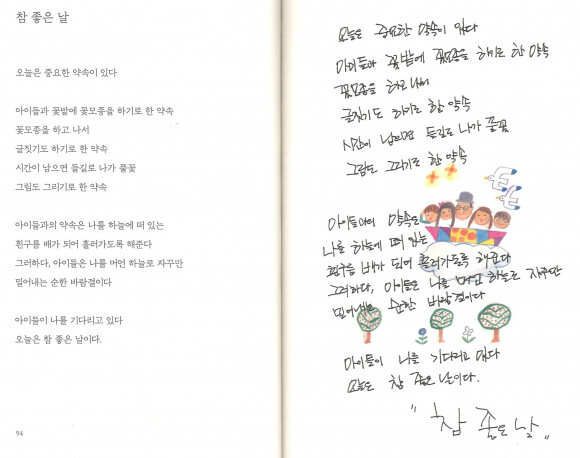 참 좋은 날
오늘은 중요한 약속이 있다
아이들과 꽃밭에 꽃모종을 하기로 한 약속
꽃모종을 하고 나서
글짓기도 하기로 한 약속
시간이 남으면 들길로 나가 풀꽃
그림도 그리기로 한 약속
아이들과의 약속은 나를 하늘에 떠 있는
흰구름 배가 되어 흘러가도록 해준다
그러하다, 아이들은 나를 머언 하늘로 자꾸만
밀어내는 순한 바람결이다
아이들이 나를 기다리고 있다
오늘은 참 좋은 날이다.
94
오늘은 중요한 약속이 있다
아이들과 꽃밭에 꽃모종을 하기로 한 약속
꽃모종을 하고 나서
글짓기도 하기로 한 약속
시간이 남으면 들길로 나가 풀꽃
그림도 그리기로 한 약속
아이들과의 약속은
나를 하늘에 떠 있는
흰구름 배가 되어 흘러가도록 해준다
그러하다, 아이들은 나를 머언 하늘로 자꾸만
밀어내는 순한 바람결이다
아이들이 나를 기다리고 있다
오늘은 참 좋은 날이다.
"참 좋은 날"